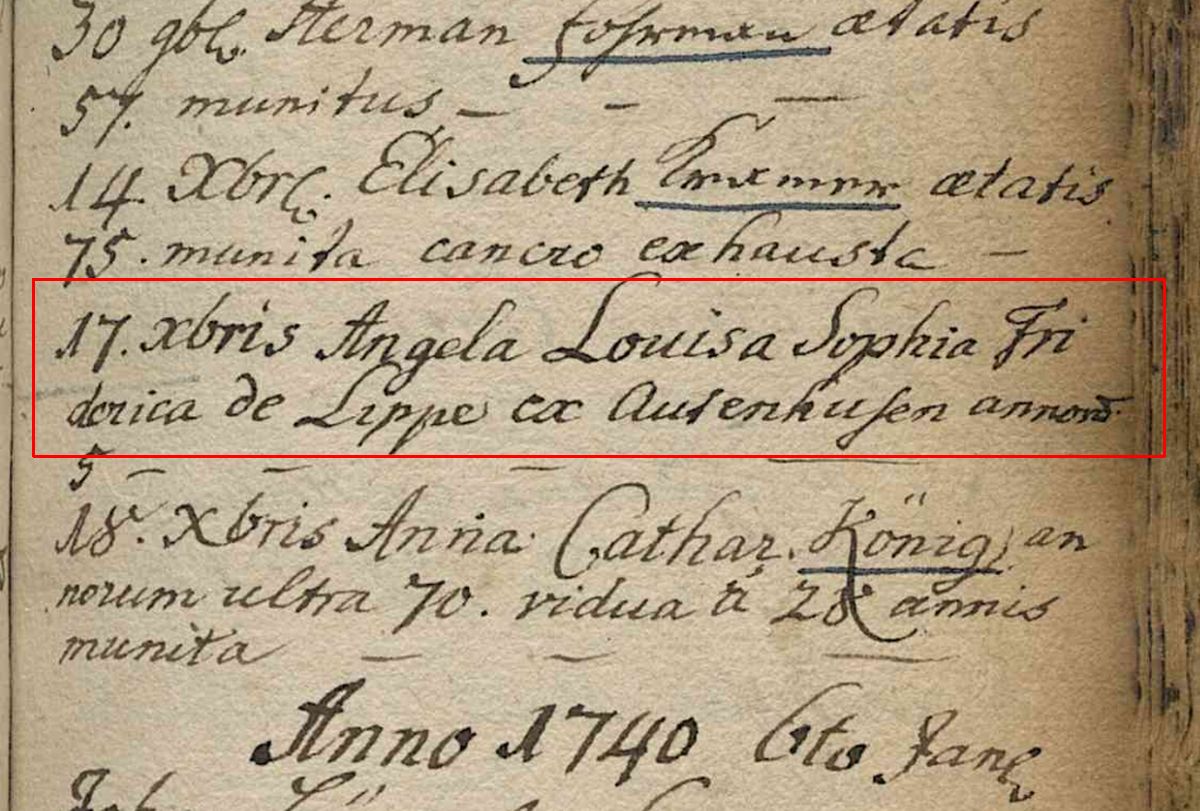 30 gbl. Herman Fohrman ætatis
57. munitus – – –
14. Xbr. Elisabeth ætatis
75. munita cancro exhausta –
17. xbris Angela Louisa Sophia Fri
derica de Lippe ex Autenhusen annorū
5 – – – –
18. Xbris Anna Cathar. König an
norum ultra 70. vidua â 28 annis
munita – – –
Anno 1740 6to Jan